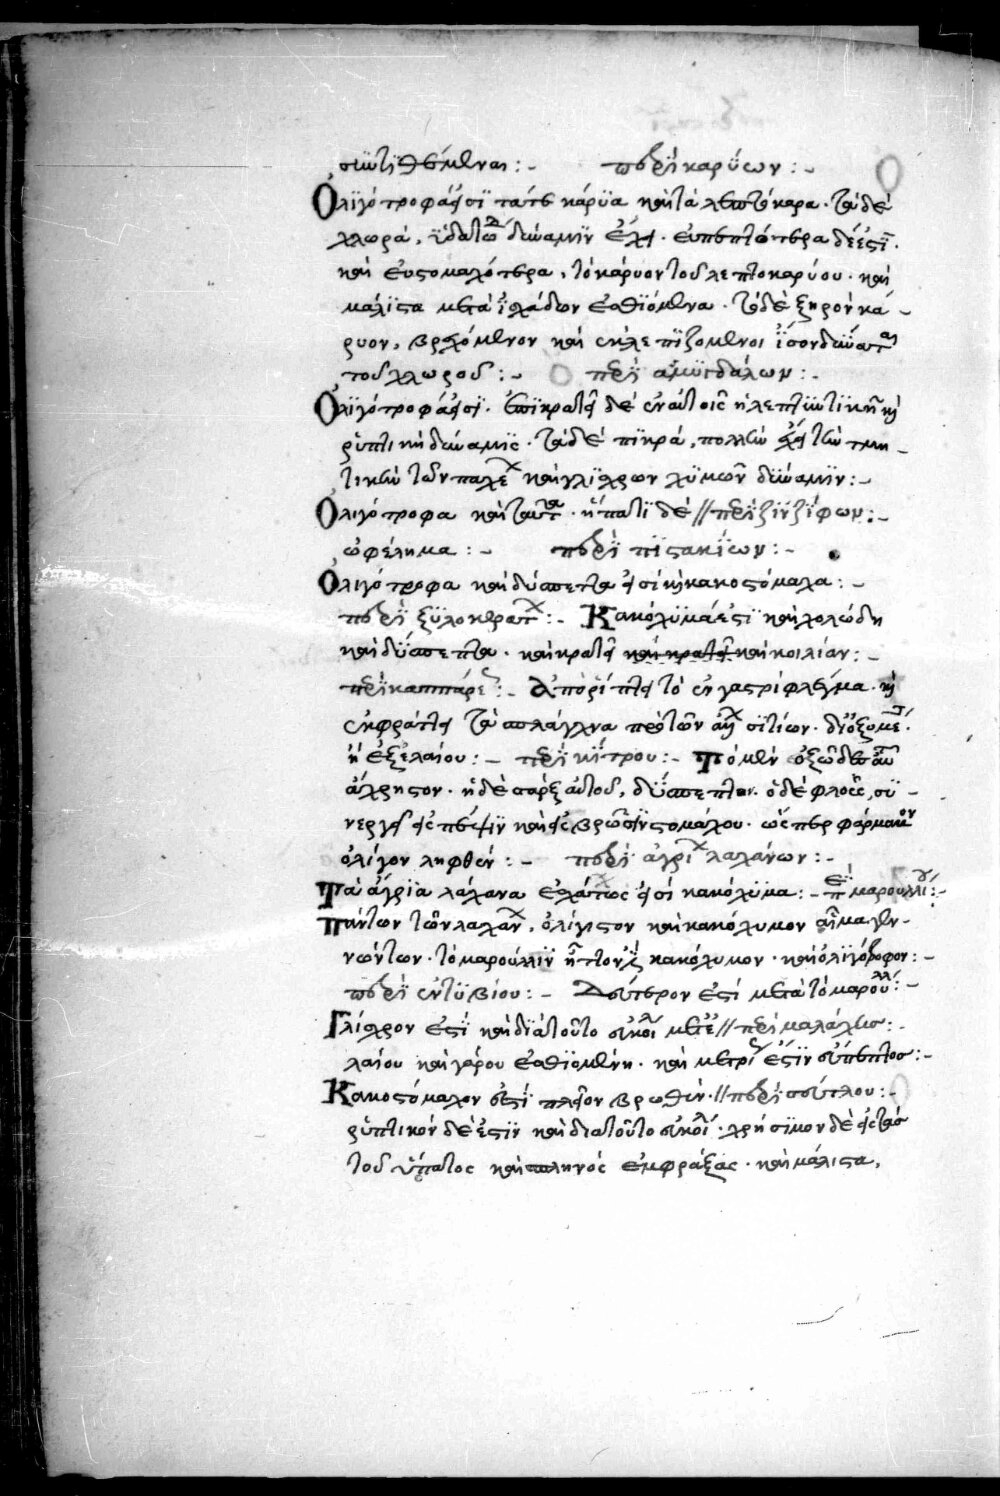 συντιθέμεναι :- περὶ καρύων :-
Ὀλιγότροφά εἰσι τά τε κάρϋα καὶ τὰ λεπτόκαρα · τὰ δὲ
χλωρὰ, ὑδατώδη δύναμιν ἔχει · εὐπεπτότερα δέ ἐστι ·
καὶ εὐστομαχότερα, τὸ κάρυον τοῦ λεπτοκαρύου · καὶ
μάλιστα μετὰ ἰσχάδων ἐσθιόμενα · τὸ δὲ ξηρὸν κά-
ρυον, βρεχόμενον καὶ ἐκλεπιζόμενον ἴσον δύναται
τοῦ χλωροῦ :- περὶ ἀμυγδάλων :-
Ὀλιγότροφά εἰσι · ἐπικρατεῖ δὲ ἐν αὐτοῖς ἡ λεπτυντικὴ καὶ
ῥυπτικὴ δύναμις · τὰ δὲ πικρὰ, πολλὴν ἔχει τὴν τμη-
τικὴν τῶν παχέων καὶ γλίσχρων χυμῶν δύναμιν :-
Ὀλιγότροφα καὶ ταῦτα · ἥπατι δὲ // περὶ ζινζίφων :-
ὠφέλημα :- περὶ πιστακίων :-
Ὀλιγότροφα καὶ δύσπεπτα εἰσὶ καὶ κακοστόμαχα :-
περὶ ξυλοκεράτων :- Κακόχυμά ἐστι καὶ χολώδη
καὶ δύσπεπτα · καὶ κρατεῖ καὶ κρατεῖ καὶ κοιλίαν :-
περὶ καππάρεως :- Ἀπορρίπτει τὸ ἐν γαστρὶ φλέγμα · καὶ
ἐκφράττει τὰ σπλάγχνα πρὸ τῶν ἄλλων σιτίων · δι' ὀξομέλιτος
ἢ ἐξ ἐλαίου :- περὶ κίτρου :- Τὸ μὲν ὀξῶδες αὐτοῦ
ἄχρηστον · ἡ δὲ σὰρξ αὐτοῦ, δύσπεπτος · ὁ δὲ φλοιὸς, συ-
νεργεῖ εἰς πέψιν καὶ εἰς ῥῶσιν στομάχου · ὥσπερ φάρμακον
ὀλίγον ληφθέν :- περὶ ἀγρίων λαχάνων :-
Τὰ ἄγρια λάχανα ἐσχάτως εἰσὶ κακόχυμα :- περὶ μαρουλλίου :-
Πάντων τῶν λαχάνων, ὀλίγιστον καὶ κακόχυμον αἷμα γεν-
νώντων · τὸ μαρούλλιν ἧττον ἐστὶ κακόχυμον · καὶ ὀλιγότροφον :-
περὶ ἐντυβίου :- Δεύτερον ἐστὶ μετὰ τὸ μαρούλλι :-
Γλίσχρον ἐστὶ καὶ διὰ τοῦτο εὐκοίλιον μετ' ἐ // περὶ μαλάχης :-
λαίου καὶ γάρου ἐσθιομένη · καὶ μετρίως ἐστὶν εὔπεπτος :-
Κακοστόμαχον ἐστὶ πλεῖον βρωθέν · // περὶ σεύτλου :-
ῥυπτικὸν δέ ἐστιν καὶ διατοῦτο εὐκοίλιον · χρήσιμον δὲ εἰς τὰς
τοῦ ἥπατος καὶ σπληνὸς ἐμφράξας · καὶ μάλιστα,